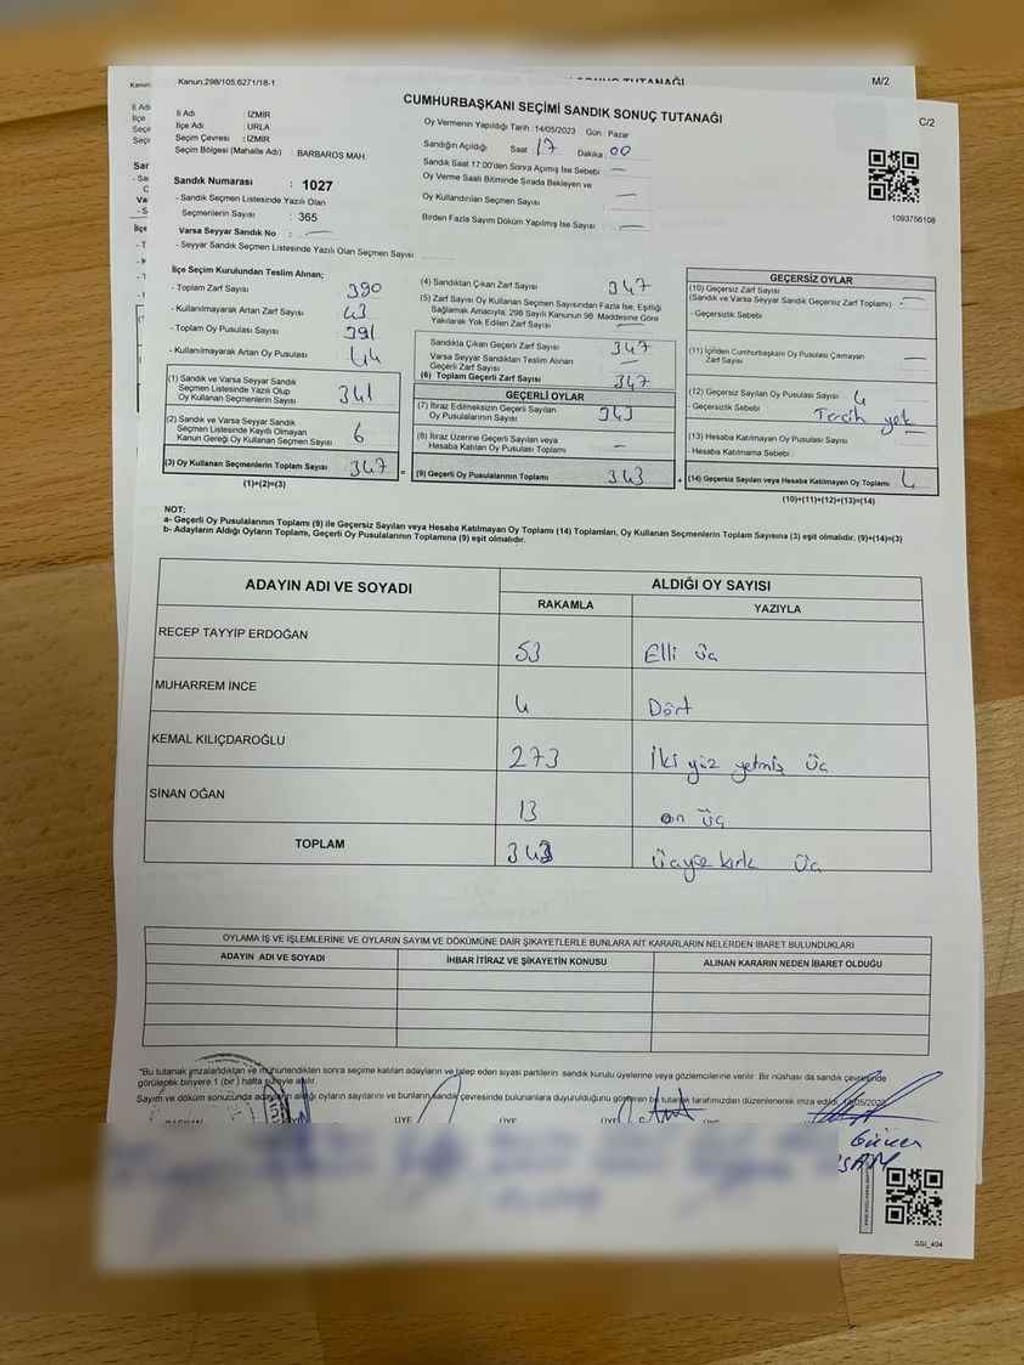 Kanun:298/105,6271/18-1
M/2
C/2
CUMHURBAŞKANI SEÇİMİ SANDIK SONUÇ TUTANAĞI
İl Adı : İZMİR
İlçe Adı : URLA
Seçim Çevresi : İZMİR
Seçim Bölgesi (Mahalle Adı) : BARBAROS MAH.
Oy Vermenin Yapıldığı Tarih : 14/05/2023 Gün : Pazar
Sandığın Açıldığı Saat : 17 Dakika : 00
Sandık Saat 17:00'den Sonra Açılmış İse Sebebi : —
Oy Verme Saati Bitiminde Sırada Bekleyen ve
Oy Kullandırılan Seçmen Sayısı —
Birden Fazla Sayım Döküm Yapılmış İse Sayısı : —
1093756108
Sandık Numarası : 1027
- Sandık Seçmen Listesinde Yazılı Olan
Seçmenlerin Sayısı : 365
Varsa Seyyar Sandık No : —
- Seyyar Sandık Seçmen Listesinde Yazılı Olan Seçmen Sayısı
İlçe Seçim Kurulundan Teslim Alınan;
- Toplam Zarf Sayısı 390
- Kullanılmayarak Artan Zarf Sayısı 43
- Toplam Oy Pusulası Sayısı 391
- Kullanılmayarak Artan Oy Pusulası 44
(1) Sandık ve Varsa Seyyar Sandık
Seçmen Listesinde Yazılı Olup
Oy Kullanan Seçmenlerin Sayısı 341
(2) Sandık ve Varsa Seyyar Sandık
Seçmen Listesinde Kayıtlı Olmayan
Kanun Gereği Oy Kullanan Seçmen Sayısı 6
(3) Oy Kullanan Seçmenlerin Toplam Sayısı 347
(1)+(2)=(3)
(4) Sandıktan Çıkan Zarf Sayısı 347
(5) Zarf Sayısı Oy Kullanan Seçmen Sayısından Fazla İse, Eşitliği
Sağlamak Amacıyla, 298 Sayılı Kanunun 98. Maddesine Göre
Yakılarak Yok Edilen Zarf Sayısı —
Sandıkta Çıkan Geçerli Zarf Sayısı 347
Varsa Seyyar Sandıktan Teslim Alınan
Geçerli Zarf Sayısı —
(6) Toplam Geçerli Zarf Sayısı 347
GEÇERLİ OYLAR
(7) İtiraz Edilmeksizin Geçerli Sayılan
Oy Pusulalarının Sayısı 343
(8) İtiraz Üzerine Geçerli Sayılan veya
Hesaba Katılan Oy Pusulaları Toplamı —
= (9) Geçerli Oy Pusulalarının Toplamı 343
GEÇERSİZ OYLAR
(10) Geçersiz Zarf Sayısı
(Sandık ve Varsa Seyyar Sandık Geçersiz Zarf Toplamı) —
- Geçersizlik Sebebi
(11) İçinden Cumhurbaşkanı Oy Pusulası Çıkmayan
Zarf Sayısı —
(12) Geçersiz Sayılan Oy Pusulası Sayısı 4
- Geçersizlik Sebebi Tercih yok
(13) Hesaba Katılmayan Oy Pusulası Sayısı —
- Hesaba Katılmama Sebebi
+ (14) Geçersiz Sayılan veya Hesaba Katılmayan Oy Toplamı 4
(10)+(11)+(12)+(13)=(14)
NOT:
a- Geçerli Oy Pusulalarının Toplamı (9) ile Geçersiz Sayılan veya Hesaba Katılmayan Oy Toplamı (14) Toplamları, Oy Kullanan Seçmenlerin Toplam Sayısına (3) eşit olmalıdır. (9)+(14)=(3)
b- Adayların Aldığı Oyların Toplamı, Geçerli Oy Pusulalarının Toplamına (9) eşit olmalıdır.
ADAYIN ADI VE SOYADI ALDIĞI OY SAYISI
RAKAMLA YAZIYLA
RECEP TAYYİP ERDOĞAN 53 Elli üç
MUHARREM İNCE 4 Dört
KEMAL KILIÇDAROĞLU 273 İki yüz yetmiş üç
SİNAN OĞAN 13 on üç
TOPLAM 343 üçyüz kırk üç
OYLAMA İŞ VE İŞLEMLERİNE VE OYLARIN SAYIM VE DÖKÜMÜNE DAİR ŞİKAYETLERLE BUNLARA AİT KARARLARIN NELERDEN İBARET BULUNDUKLARI
ADAYIN ADI VE SOYADI İHBAR İTİRAZ VE ŞİKAYETİN KONUSU ALINAN KARARIN NEDEN İBARET OLDUĞU
"Bu tutanak imzalandıktan ve mühürlendikten sonra seçime katılan adayların ve talep eden siyasi partilerin sandık kurulu üyelerine veya gözlemcilerine verilir. Bir nüshası da sandık çevresinde
görülebilir bir yere 1 (bir) hafta süreyle asılır.
Sayım ve döküm sonucunda adayların aldığı oyların sayılarını ve bunların sandık çevresinde bulunanlara duyurulduğunu gösteren bu tutanak tarafımızdan düzenlenerek imza edildi.
ÜYE ÜYE ÜYE
SSI_404